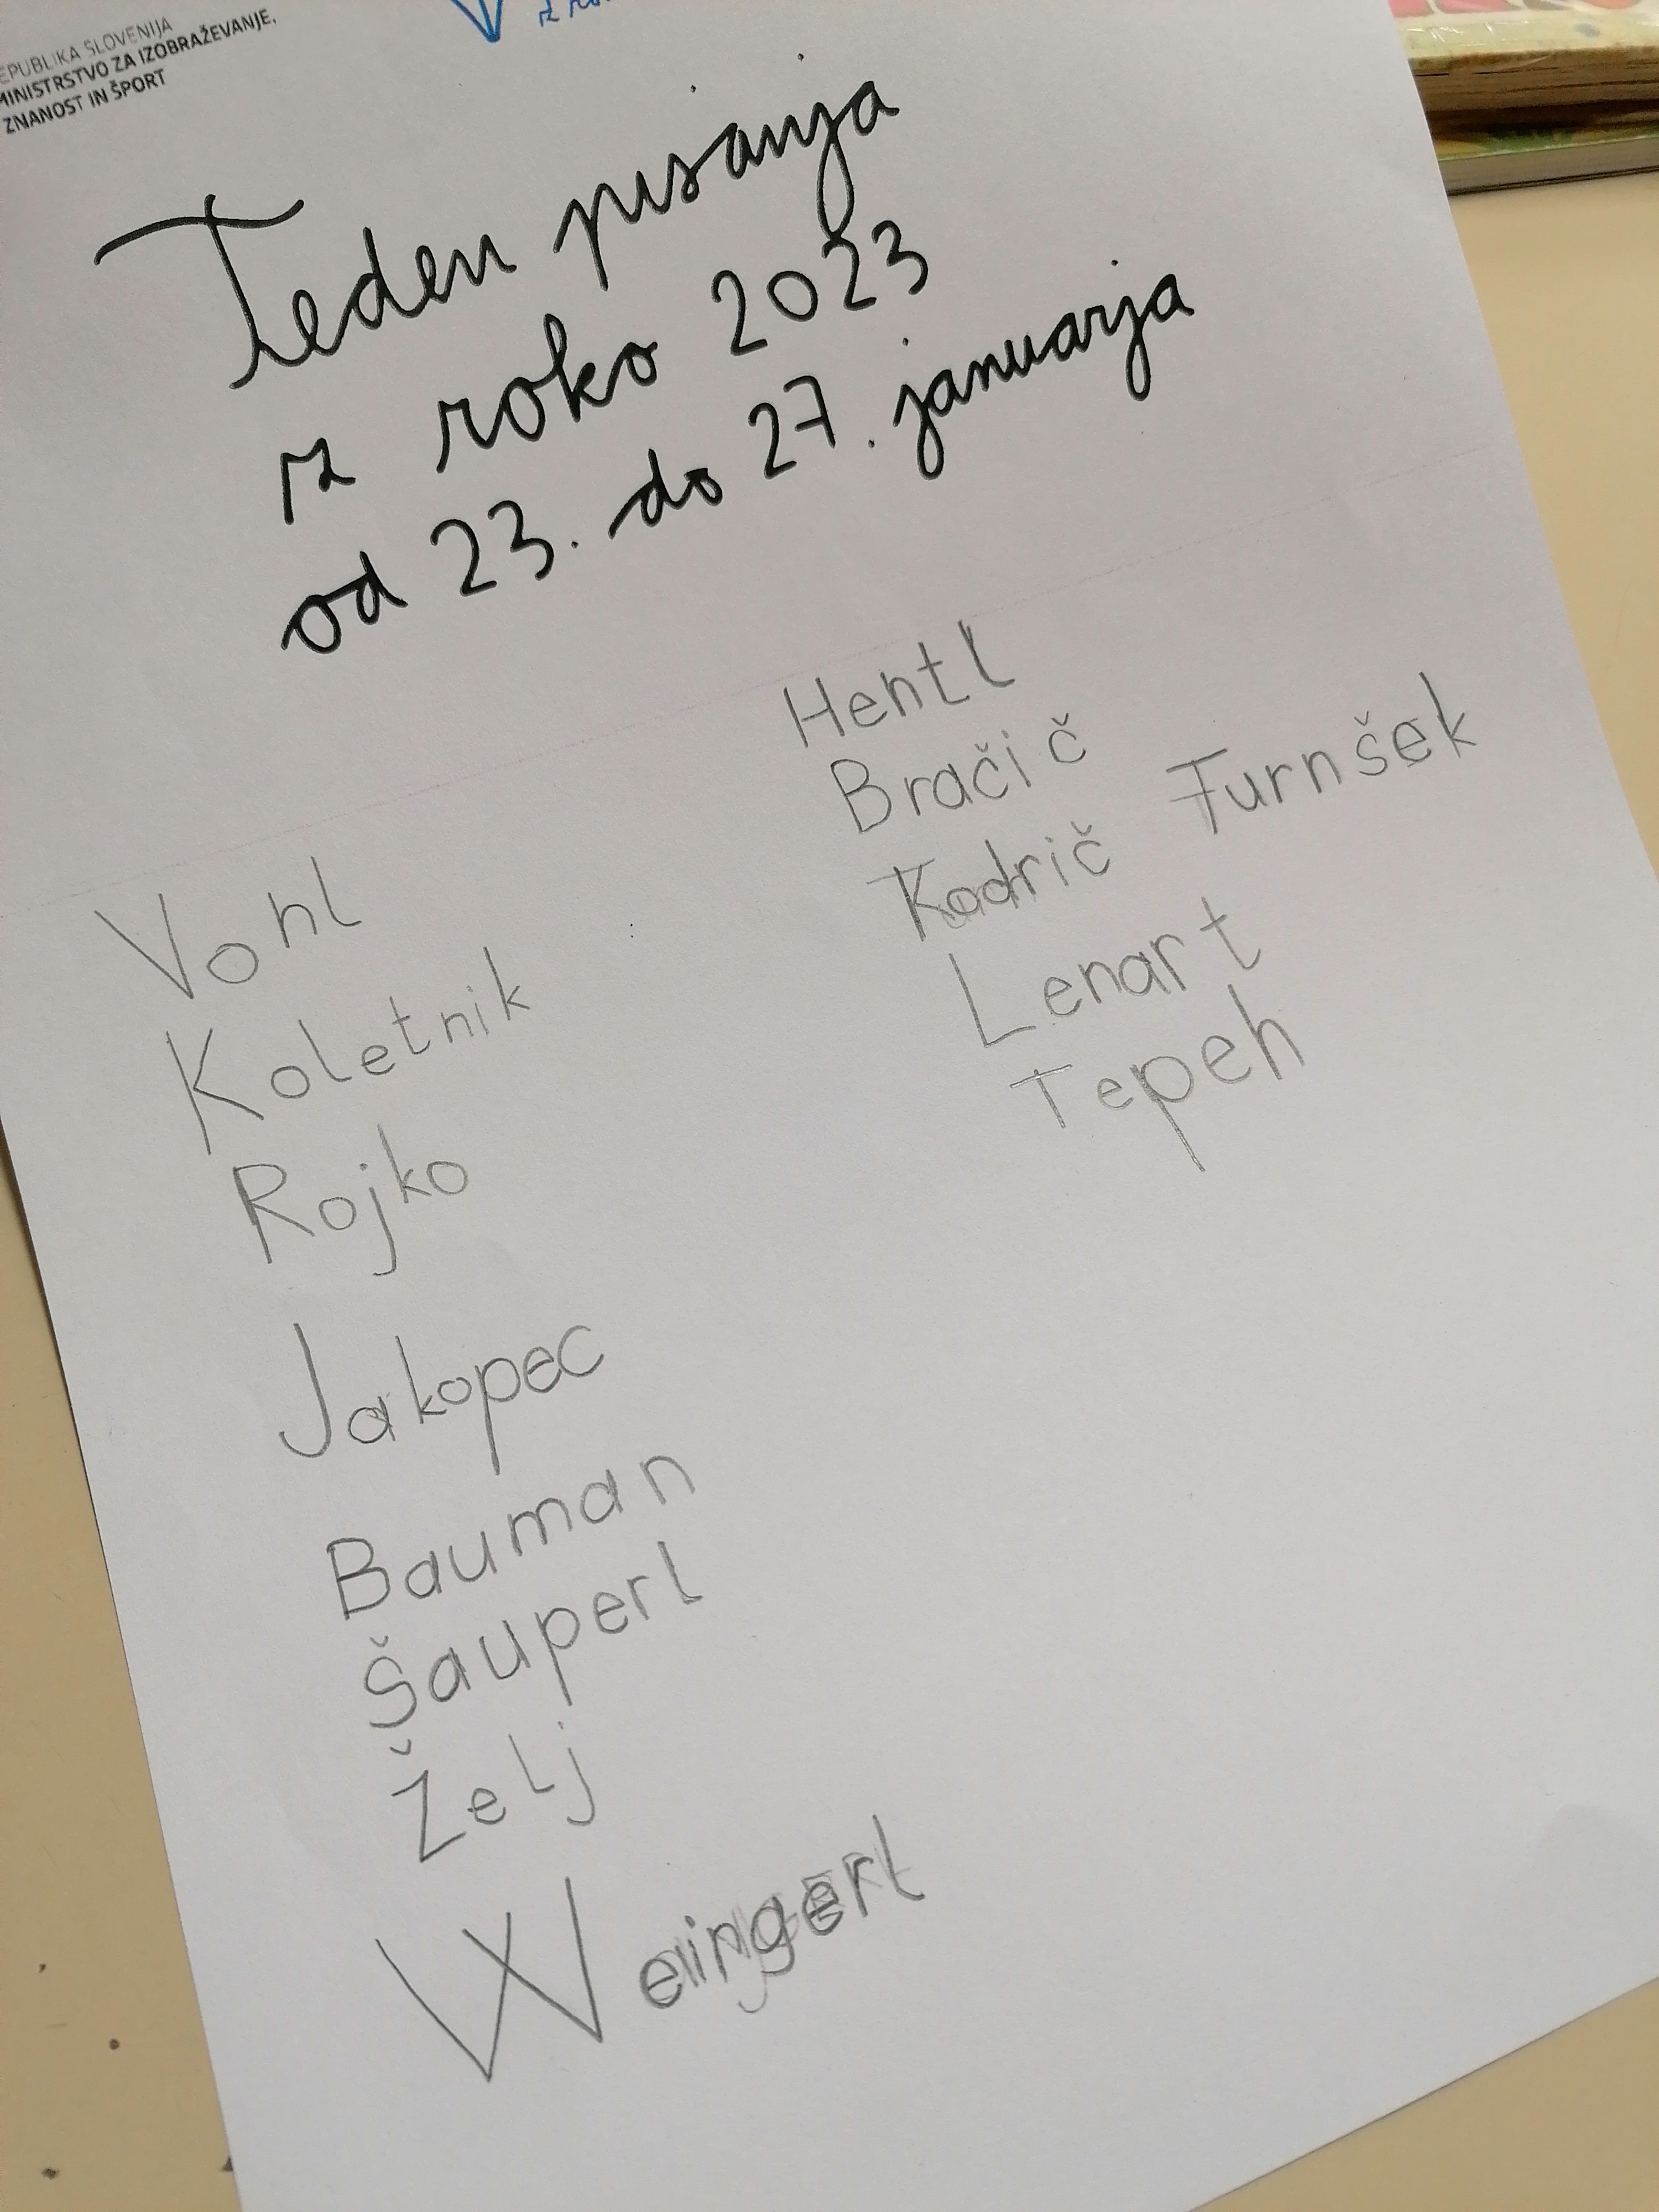 REPUBLIKA SLOVENIJA
MINISTRSTVO ZA IZOBRAŽEVANJE,
ZNANOST IN ŠPORT
Teden pisanja
z roko 2023
od 23. do 27. januarja
Vohl
Koletnik
Rojko
Jakopec
Bauman
Šauperl
Želj
Weingerl
Hentl
Bračič
Kodrič Turnšek
Lenart
Tepeh